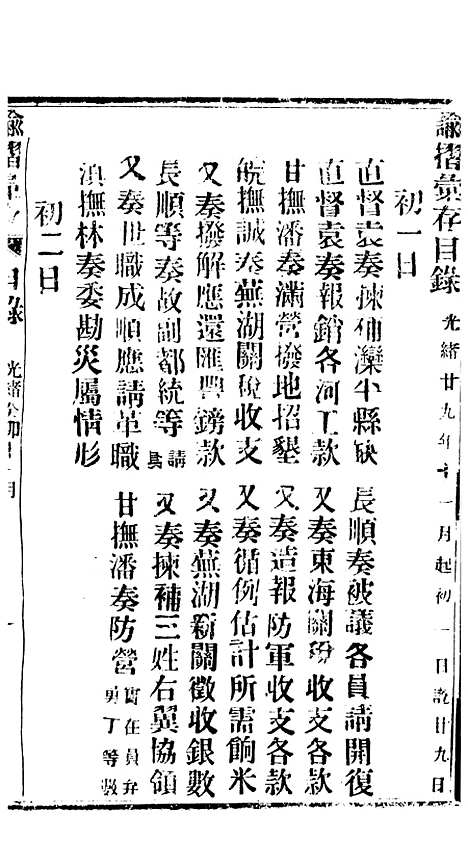 諭摺彙存目錄 光緒廿九年十一月起初一日訖廿九日
初一日
直督袁奏揀補灤平縣缺 長順奏被議各員請開復
直督袁奏報銷各河工款 又奏東海關 收支各款
甘撫潘奏滿營撥地招墾 又奏造報防軍收支各款
皖撫誠奏蕪湖關稅收支 又奏循例估計所需餉米
又奏撥解應還匯豐鎊款 又奏蕪湖新關徵收銀數
長順等奏故副都統等請 又奏揀補三姓右翼協領
又奏世職成順應請革職 甘撫潘奏防營實在員弁勇丁等數
滇撫林奏委勘災屬情形
初二日
諭摺彙 目錄 光緒 月 一